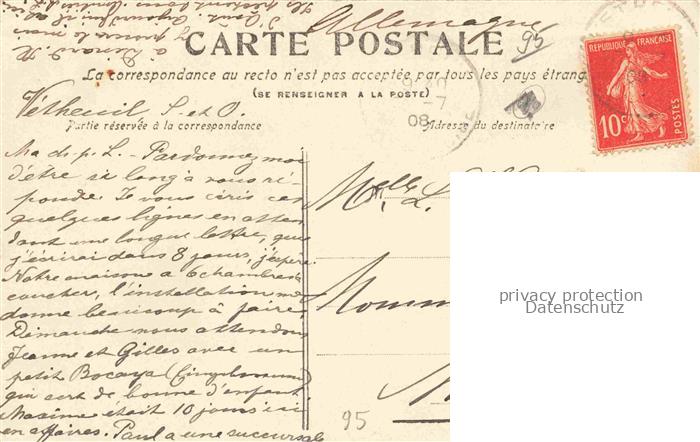 Allemagne
CARTE POSTALE
95
La correspondance au recto n'est pas acceptée par tous les pays étrang
(SE RENSEIGNER A LA POSTE)
REPUBLIQUE FRANÇAISE
10c
POSTES
-7
08
Vetheuil S. et O.
Partie réservée à la correspondance
Adresse du destinataire
Ma ch. p. L. - Pardonnez moi
d'être si long à vous ré-
pondre. Je vous écris ces
quelques lignes en atten
dant une longue lettre, que
j'écrirai dans 8 jours, j'espère.
Notre maison a 6 chambres à
coucher, l'installation me
donne beaucoup à faire.
Dimanche nous attendons
Jeanne et Gilles avec un
petit Bocaya
qui sert de bonne d'enfant.
Maxime était 10 jours ici
en affaires. Paul a une succursale
Melle L.
95
privacy protection
Datenschutz